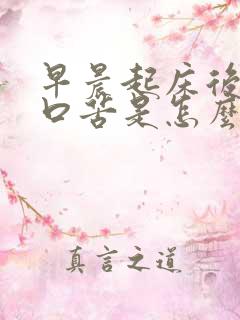 早晨起床後
口苦是怎麼
真言之道